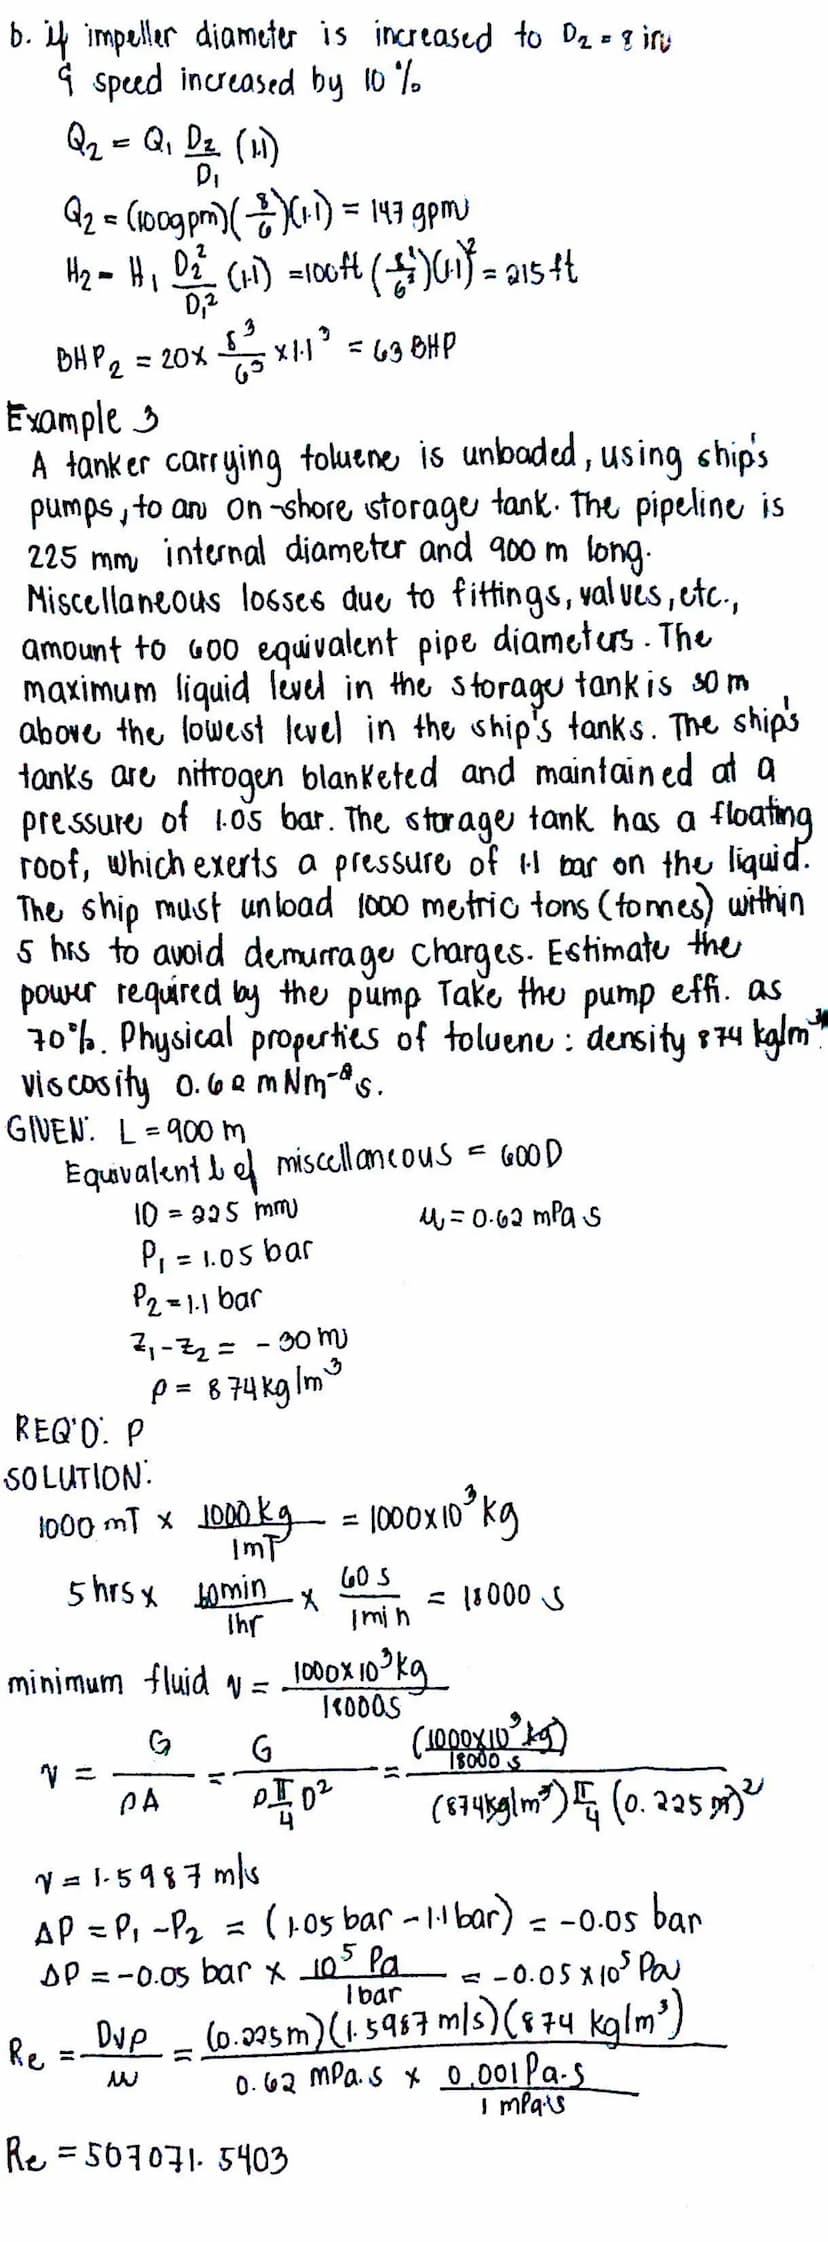 b. if impeller diameter is increased to D₂ = 8 in
& speed increased by 10%
Q₂ = Q₁ D₂/D₁ (1.1)
Q₂ = (100gpm)(8/6)(1.1) = 147 gpm
H₂ = H₁ D₂²/D₁² (1.1) = 100ft (8²/6²)(1.1)² = 215 ft
BHP₂ = 20 x 8³/6³ x 1.1³ = 63 BHP
Example 3
A tanker carrying toluene is unloaded, using ship's
pumps, to an on-shore storage tank. The pipeline is
225 mm internal diameter and 900 m long.
Miscellaneous losses due to fittings, valves, etc.,
amount to 600 equivalent pipe diameters. The
maximum liquid level in the storage tank is 30 m
above the lowest level in the ship's tanks. The ship's
tanks are nitrogen blanketed and maintained at a
pressure of 1.05 bar. The storage tank has a floating
roof, which exerts a pressure of 1.1 bar on the liquid.
The ship must unload 1000 metric tons (tonnes) within
5 hrs to avoid demurrage charges. Estimate the
power required by the pump Take the pump effi. as
70%. Physical properties of toluene: density 874 kg/m³
viscosity 0.62 mNm⁻²s.
GIVEN: L = 900 m
Equivalent L of miscellaneous = 600D
ID = 225 mm μ = 0.62 mPa s
P₁ = 1.05 bar
P₂ = 1.1 bar
z₁-z₂ = - 30 m
ρ = 874 kg/m³
REQ'D: P
SOLUTION:
1000 mT x 1000 kg/1mT = 1000x10³ kg
5 hrs x 60min/1hr x 60 s/1min = 18000 s
minimum fluid v = 1000x10³kg/18000s
v = G/ρA = G/ρ π/4 D² = (1000x10³ kg)/18000 s/(874kg/m³) π/4 (0.225 m)²
v = 1.5987 m/s
ΔP = P₁ - P₂ = (1.05 bar - 1.1 bar) = -0.05 bar
ΔP = -0.05 bar x 10⁵ Pa/1bar = -0.05 x 10⁵ Pa
Re = Dvρ/μ = (0.225m)(1.5987 m/s)(874 kg/m³)/0.62 mPa.s x 0.001 Pa-s/1 mPa.s
Re = 507071.5403